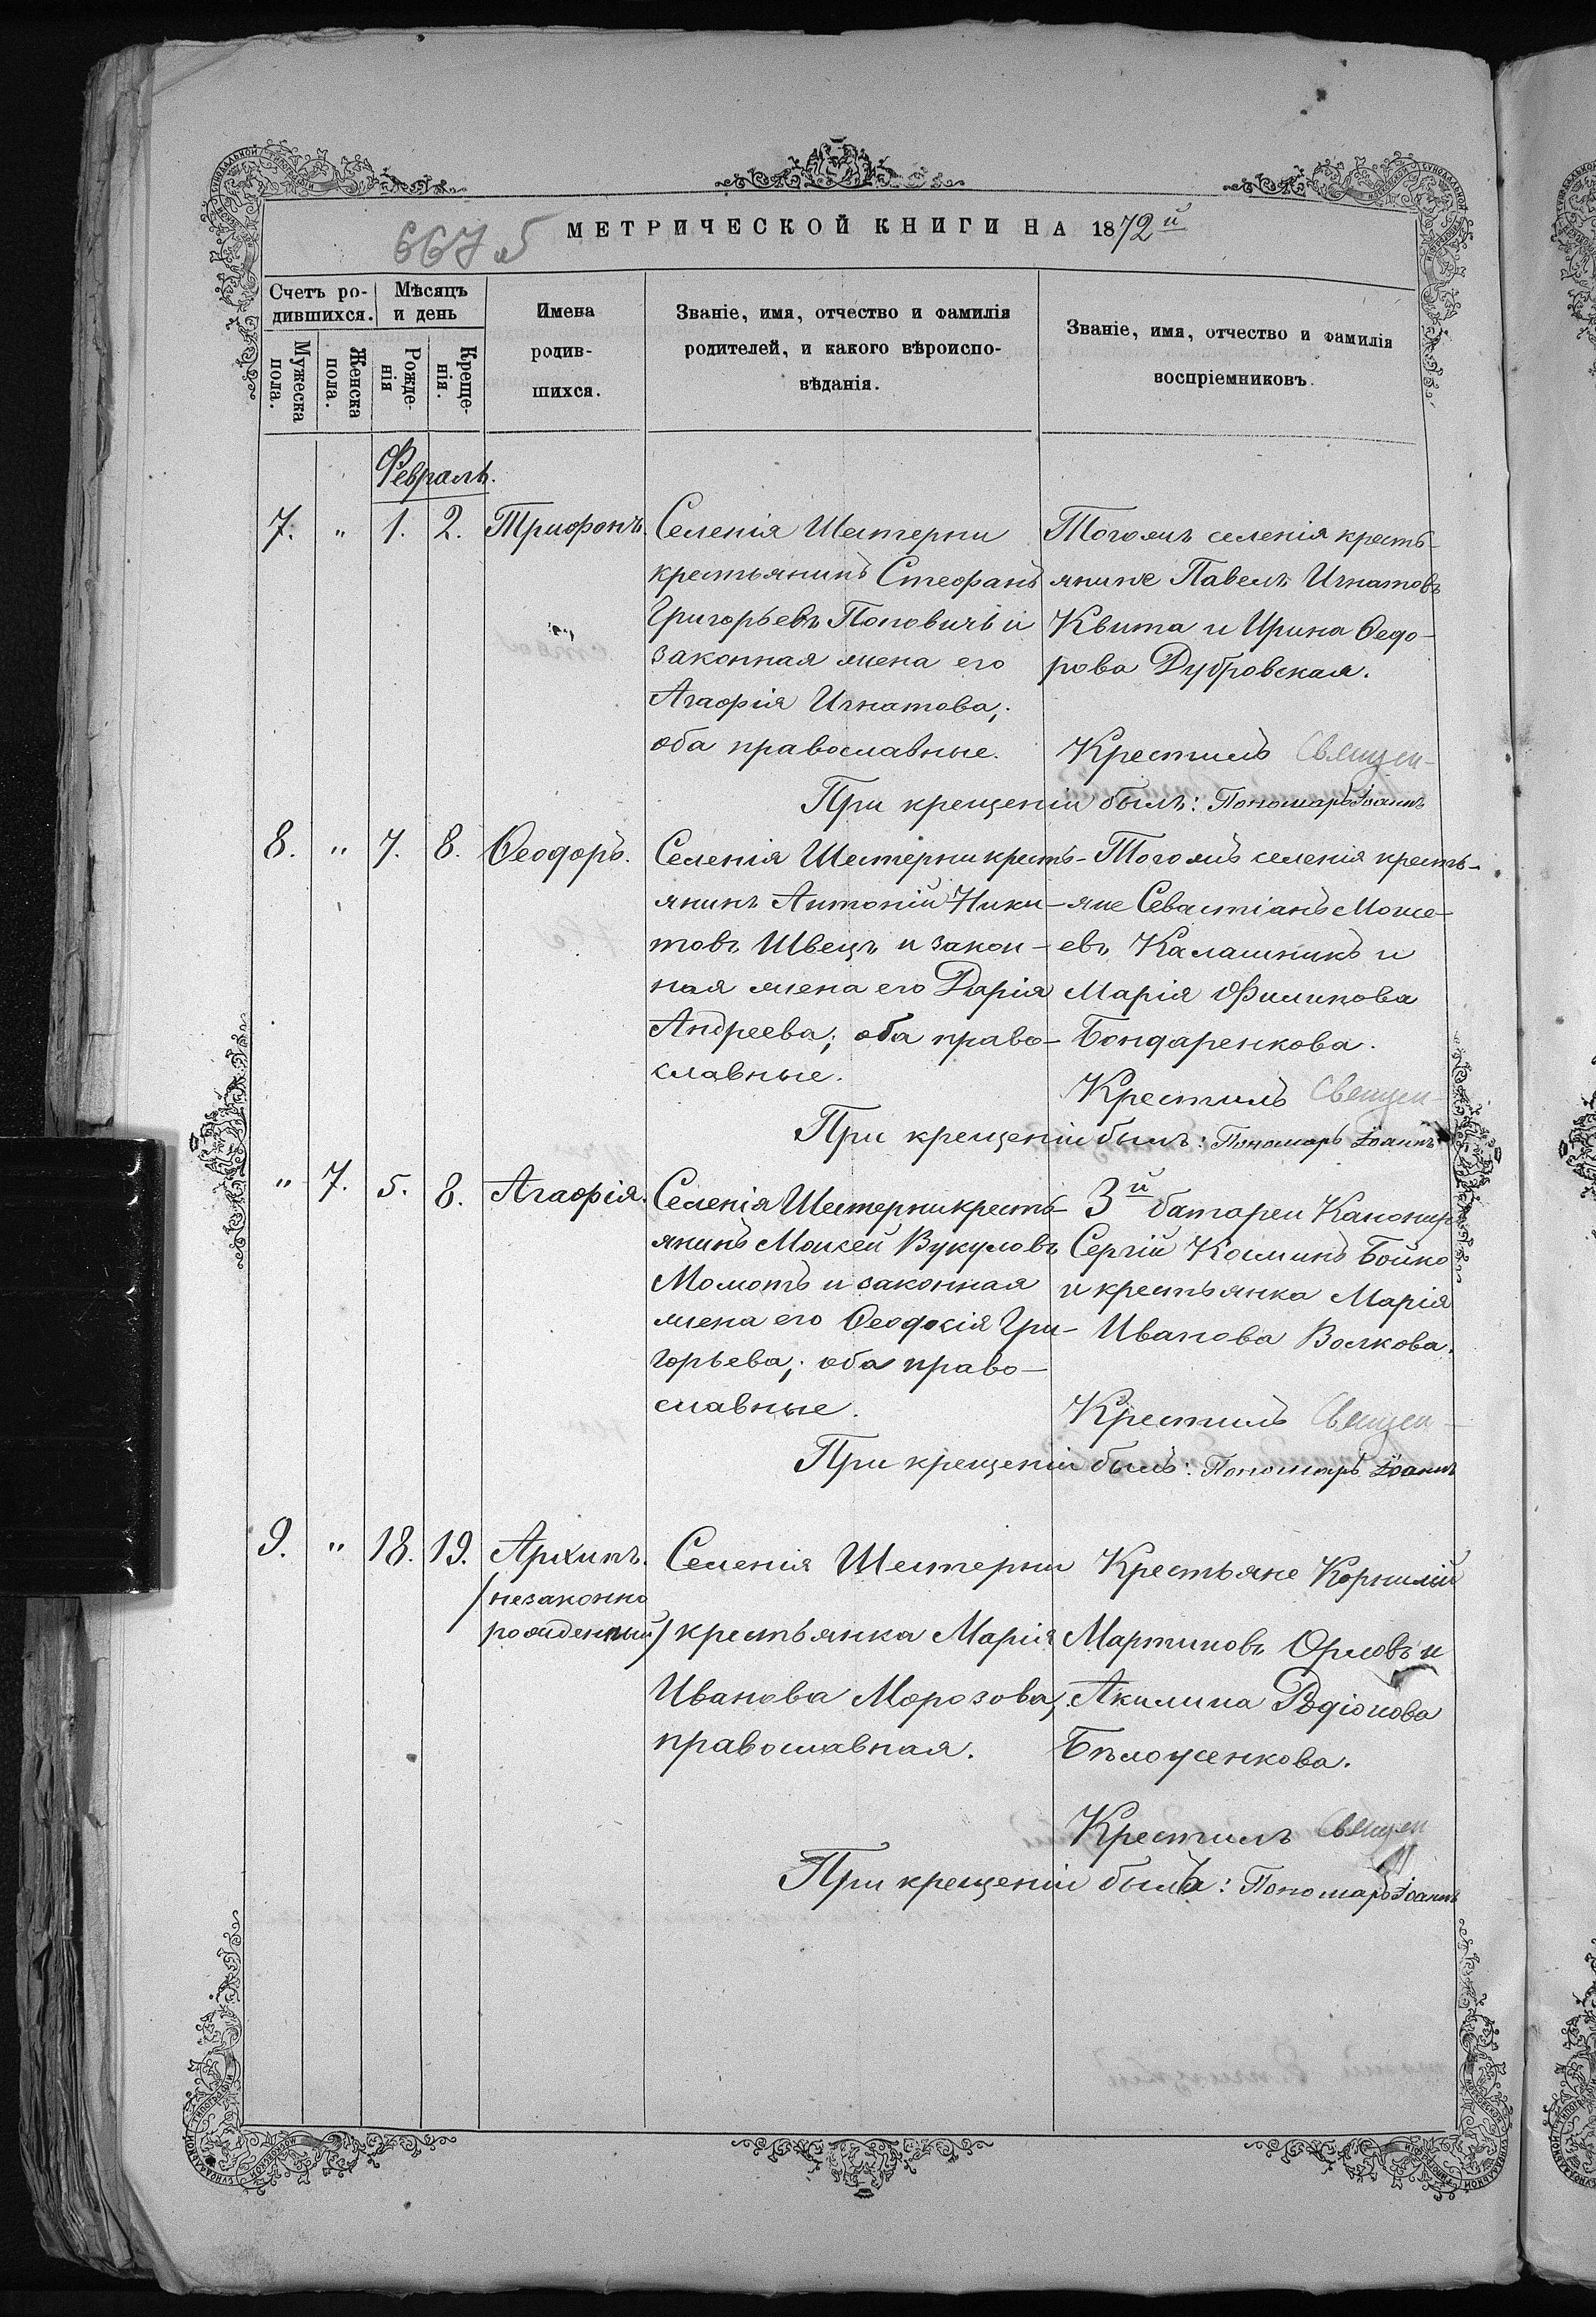 667 б МЕТРИЧЕСКОЙ КНИГИ НА 1872й
Счетъ ро-
дившихся.
Мѣсяцъ
и день
Мужеска
пола.
Женска
пола.
Рожде-
нія
Креще-
нія.
Имена
родив-
шихся.
Званіе, имя, отчество и фамилія
родителей, и какого вѣроиспо-
вѣданія.
Званіе, имя, отчество и фамилія
воспріемниковъ.
Февраль.
7. " 1. 2. Трифонъ.
Селенія Шестерни
крестьянинъ Стефанъ
Григорьевъ Поповичъ и
законная жена его
Агафія Игнатова;
оба православные.
Тогожъ селенія кресть-
янине Павелъ Игнатовъ
Квита и Ирина Ѳедо-
рова Дубровская.
Крестилъ Священ-
При крещеніи былъ: Пономарь Іоаннъ
8. " 7. 8. Ѳеодоръ.
Селенія Шестерни кресть-
янинъ Антоній Ники-
товъ Швецъ и закон-
ная жена его Дарія
Андреева; оба право-
славные.
Тогожъ селенія кресть-
яне Севастіанъ Моисе-
евъ Калашникъ и
Марія Филипова
Бондаренкова.
Крестилъ Священ-
При крещеніи былъ: Пономарь Іоаннъ
" 7. 5. 8. Агафія.
Селенія Шестерни кресть-
янинъ Моисей Вукуловъ
Момотъ и законная
жена его Ѳеодосія Гри-
горьева; оба право-
славные.
3й батареи Канониръ
Сергій Косминъ Бойко
и крестьянка Марія
Иванова Волкова.
Крестилъ Священ-
При крещеніи былъ: Пономарь Іоаннъ
9. " 18. 19. Архипъ.
/незаконно
рожденный/
Селенія Шестерни
крестьянка Марія
Иванова Морозова,
православная.
Крестьяне Корнилій
Мартиновъ Орловъ и
Акилина Родіонова
Бѣлоусенкова.
Крестилъ Священ
При крещеніи былъ: Пономарь Іоаннъ